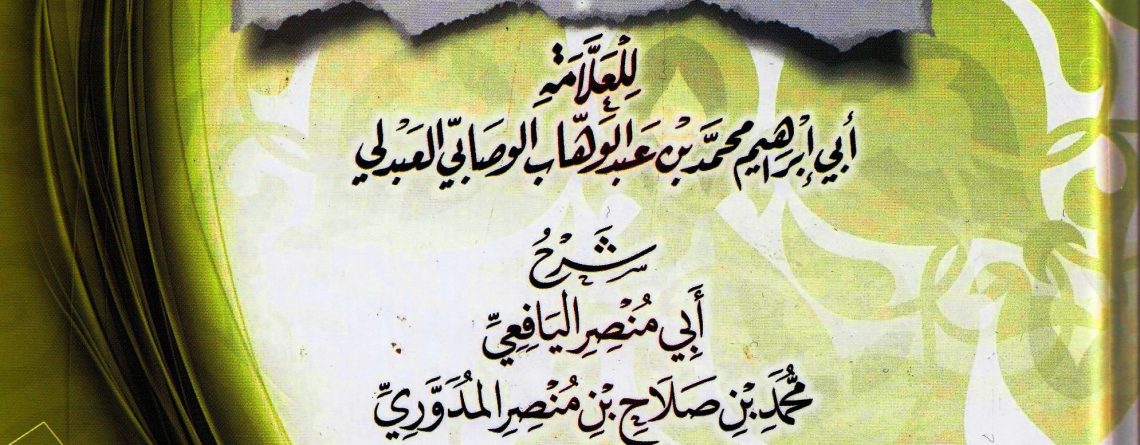 لِلْعَلَّامَةِ
أبي إبرهيم محمد بن عبد الوهّاب الوصابي العبدلي
شَرْحُ
أَبِي مُنْصِرِ اليَافِعِيِّ
مُحَمَّدِ بْنِ صَلَاحِ بْنِ مُنْصِرِ المُدَوَّرِيِّ